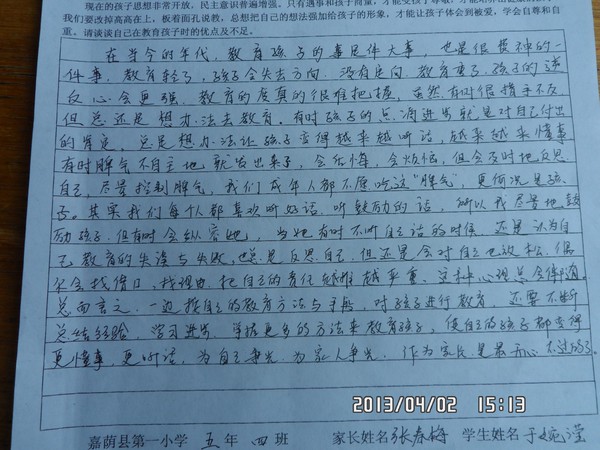 现在的孩子思想非常开放，民主意识普遍增强。只有遇事和孩子商量，才能
我们要改掉高高在上，板着面孔说教，总想把自己的想法强加给孩子的形象，才能让孩子体会到被爱，学会自尊和自
重。请谈谈自己在教育孩子时的优点及不足。
在当今的年代，教育孩子的事是件大事，也是很费神的一
件事，教育轻了，孩子会失去方向，没有定向，教育重了，孩子的逆
反心会更强，教育的度真的很难把握，虽然有时很措手不及
但总还是想办法去教育，有时孩子的点滴进步就是对自己付出
的肯定，总是想办法让孩子变得越来越听话，越来越来懂事
有时脾气不自主地就发出来了，会后悔，会烦恼，但会及时地反思
自己，尽量控制脾气，我们成年人都不愿吃这“脾气”，更何况是孩
子。其实我们每个人都喜欢听好话，听鼓励的话，所以我尽量地鼓
励孩子，但有时会纵容她，当她有时不听自己话的时候，还是认为自
己教育的失误与失败，也总是反思自己，但还是会对自己也放松，偶
尔会找借口，找理由，把自己的责任 越严重，这种心理总会伴随。
总而言之，一边按自己的教育方法与手段，对孩子进行教育，还要不断
总结经验，学习进步，掌握更多的方法来教育孩子，使自己的孩子都变得
更懂事，更听话，为自己争光，为家人争光，作为家长是最开心不过的了。
2013/04/02 15:13
嘉荫县第一小学 五年 四班 家长姓名 张春梅 学生姓名 于婉滢